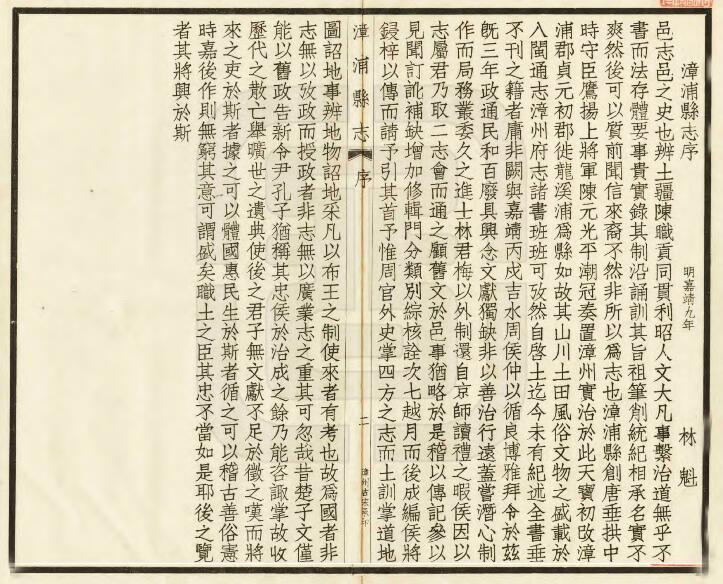 漳浦縣志序
明嘉靖九年 林魁
邑志邑之史也辨土疆陳職貢同貫利昭人文大凡事繫治道無乎不
書而法存體要事貴實錄其制沿誦訓其旨祖筆削統紀相承名實不
爽然後可以質前聞信來裔不然非所以爲志也漳浦縣創唐垂拱中
時守臣鷹揚上將軍陳元光平潮冠奏置漳州實治於此天寶初改漳
浦郡貞元初郡徙龍溪浦爲縣如故其山川土田風俗文物之盛載於
入閩通志漳州府志諸書班班可攷然自啓土迄今未有紀述全書垂
不刊之籍者庸非闕與嘉靖丙戌吉水周侯仲以循良博雅拜令於茲
旣三年政通民和百廢具興念文獻獨缺非以善治行遠蓋嘗潛心制
作而局務叢委久之進士林君梅以外制還自京師讀禮之暇侯因以
志屬君乃取二志會而通之顧舊文於邑事猶略於是稽以傳記參以
見聞訂訛補缺增加修輯門分類別綜核詮次七越月而後成編侯將
鋟梓以傳而請予引其首予惟周官外史掌四方之志而土訓掌道地
漳浦縣志 序 二
圖詔地事辨地物詔地采凡以布王之制使來者有考也故爲國者非
志無以攷政而授政者非志無以廣業志之重其可忽哉昔楚子文僅
能以舊政告新令尹孔子猶稱其忠侯於治成之餘乃能咨諏掌故收
歷代之散亡舉曠世之遺典使後之君子無文獻不足於徵之嘆而將
來之吏於斯者據之可以體國惠民生於斯者循之可以稽古善俗憲
時嘉後作則無窮其意可謂盛矣職土之臣其忠不當如是耶後之覽
者其將興於斯